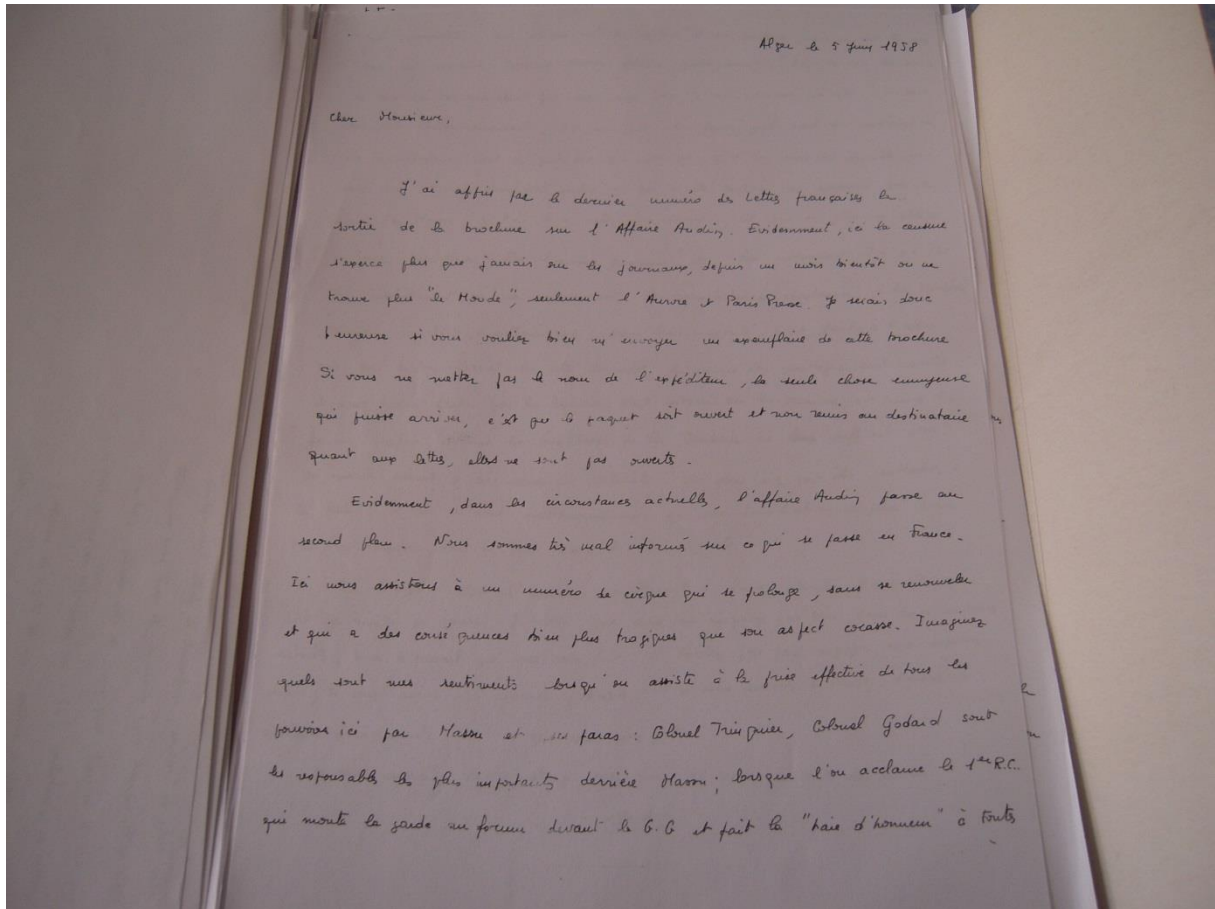 Alger le 5 juin 1958
Cher Monsieur,
J'ai appris par le dernier numéro des Lettres françaises la
sortie de la brochure sur l'Affaire Audin. Evidemment, ici la censure
s'exerce plus que jamais sur les journaux, depuis un mois bientôt on ne
trouve plus "le Monde", seulement l'Aurore et Paris Presse. Je serais donc
heureuse si vous vouliez bien m'envoyer un exemplaire de cette brochure
Si vous ne mettez pas le nom de l'expéditeur, la seule chose ennuyeuse
qui puisse arriver, c'est que le paquet soit ouvert et non remis au destinataire
quant aux lettres, elles ne sont pas ouvertes.
Evidemment, dans les circonstances actuelles, l'affaire Audin passe au
second plan. Nous sommes très mal informés sur ce qui se passe en France.
Ici nous assistons à un numéro de cirque qui se prolonge, sans se renouveler
et qui a des conséquences bien plus tragiques que son aspect cocasse. Imaginez
quels sont mes sentiments lorsqu'on assiste à la prise effective de tous les
pouvoirs ici par Massu et ses paras : Colonel Trinquier, Colonel Godard sont
les responsables les plus importants derrière Massu ; lorsque l'on acclame le 1er R.C.
qui monte la garde au forum devant le G.G et fait la "haie d'honneur" à toutes